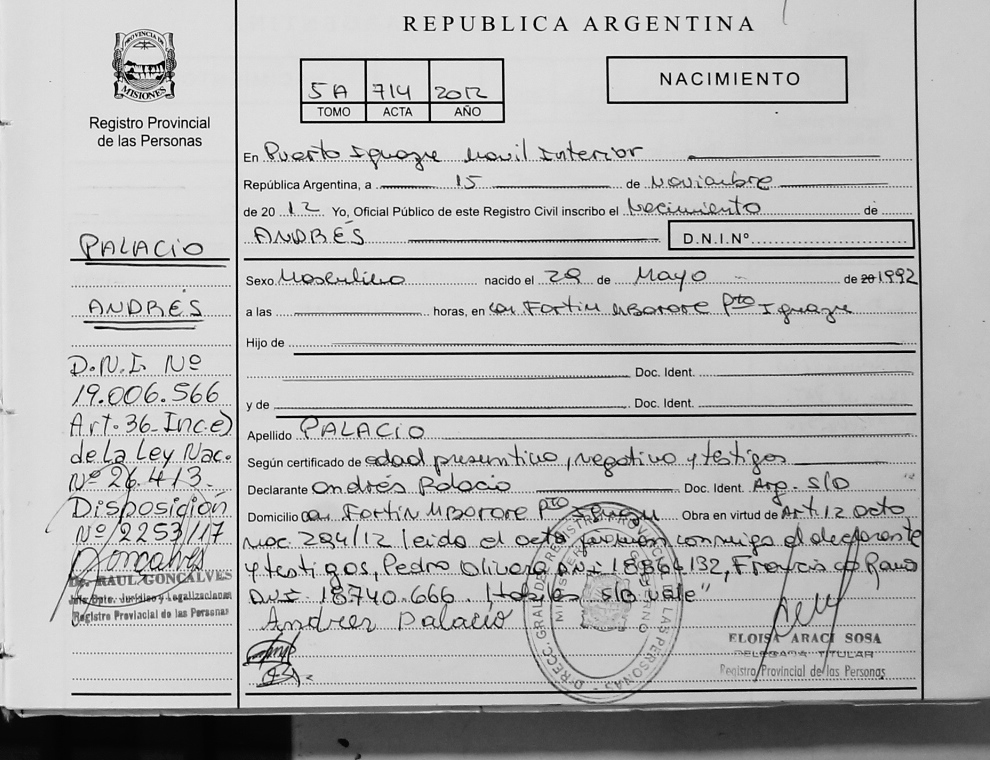 REPUBLICA ARGENTINA
PROVINCIA DE
MISIONES
Registro Provincial
de las Personas
5A 714 2012
TOMO ACTA AÑO
NACIMIENTO
En Puerto Iguazu Movil Interior
República Argentina, a 15 de Noviembre
de 20 12 Yo, Oficial Público de este Registro Civil inscribo el Nacimiento de
ANDRÉS D.N.I.Nº
Sexo Masculino nacido el 28 de Mayo de 20 1992
a las horas, en Fortin Mborore Pto Iguazu
Hijo de
Doc. Ident.
y de Doc. Ident.
Apellido PALACIO
Según certificado de edad presuntiva, negativo y testigos
Declarante Andrés Palacio Doc. Ident. Arg. S/D
Domicilio Fortin Mborore Pto Iguazu Obra en virtud de Art. 12 Dcto
Nac. 294/12 leido el acta firman conmigo el declarante
y testigos, Pedro Olivera D.N.I 18864132, Francisco Ramo
D.N.I 18740.666. Habiles S/D vale"
Andres Palacio
PALACIO
ANDRÉS
D.N.I. Nº
19.006.566
Art. 36 Inc.e)
de la Ley Nac.
Nº 26.413.
Disposición
Nº 2253/17
Goncalves
Dr. RAUL GONCALVES
Jefe Dpto. Jurídico y Legalizaciones
Registro Provincial de las Personas
ELOISA ARACI SOSA
DELEGADA TITULAR
Registro Provincial de las Personas